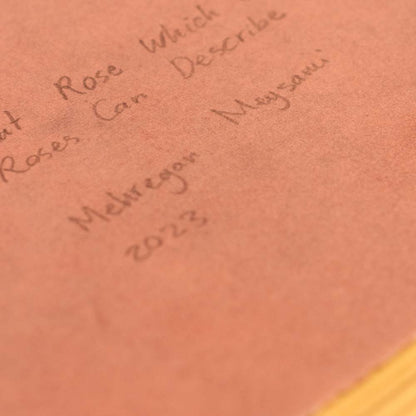 at Rose Which
Roses Can Describe
Mehregan Meysami
2023